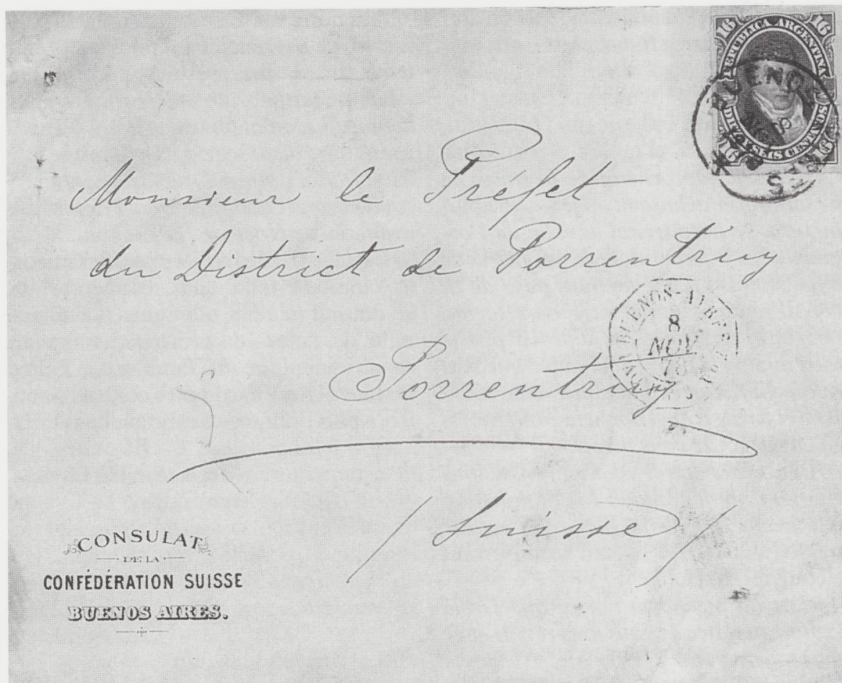 16 16
REPUBLICA ARGENTINA
DIEZ Y SEIS CENTAVOS
16
BUENOS AIRES
Monsieur le Préfet
du District de Porrentruy
BUENOS-AYRES
8
NOV
78
Porrentruy
/ Suisse /
CONSULAT
DE LA
CONFÉDÉRATION SUISSE
BUENOS AIRES.